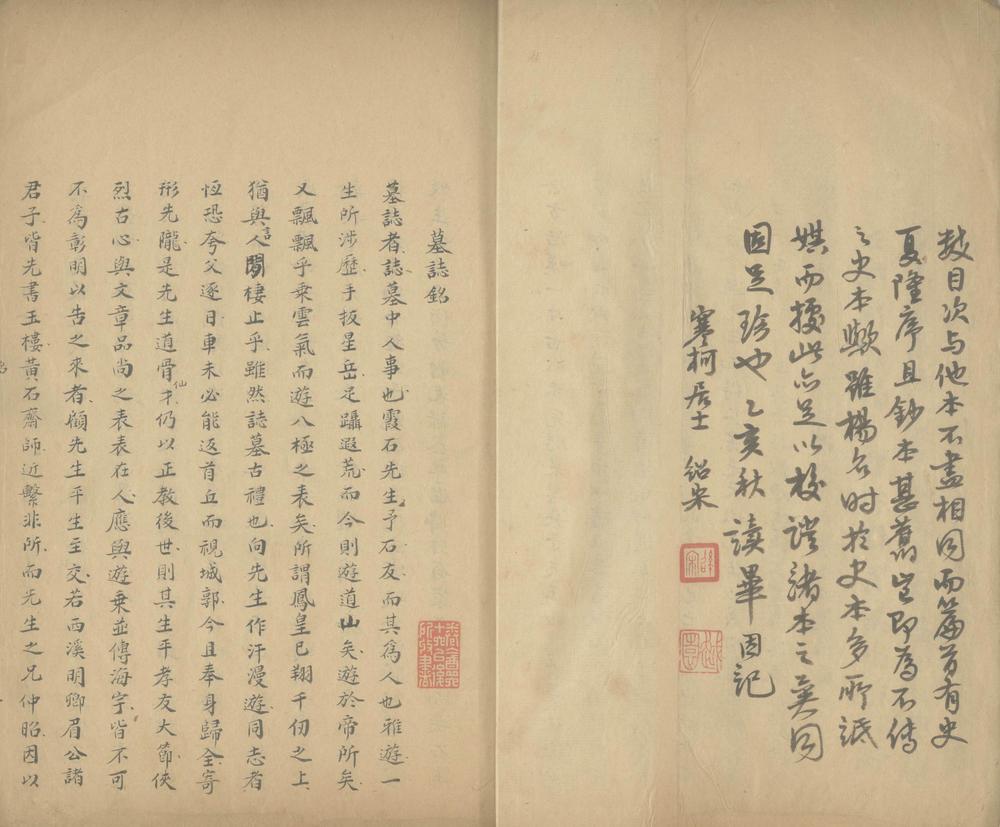 數目次与他本不盡相同而篇首有史
夏隆序且鈔本甚舊豈即為不傳
之史本歟雖楊名时於史本多所詆
娸而據此亦足以校證諸本之異同
固足珍也乙亥秋讀畢因記
寒柯居士 紹宋
墓誌銘
墓誌者誌墓中人事也霞石先生予石友而其為人也雅遊一
生所涉歷手扳星岳足躡遐荒而今則遊道山矣遊於帝所矣
又飄飄乎乗雲氣而遊八極之表矣所謂鳳皇已翔千仞之上
猶與人言閒棲止乎雖然誌墓古禮也向先生作汗漫遊同志者
恆恐夸父逐日車未必能返首丘而視城郭今且奉身歸全寄
形先隴是先生道骨仙才仍以正教後世則其生平孝友大節俠
烈古心與文章品尚之表表在人應與遊乗並傳海宇皆不可
不為彰明以告之來者顧先生平生至交若西溪明卿眉公諸
君子皆先書玉樓黃石齋師近繫非所而先生之兄仲昭因以